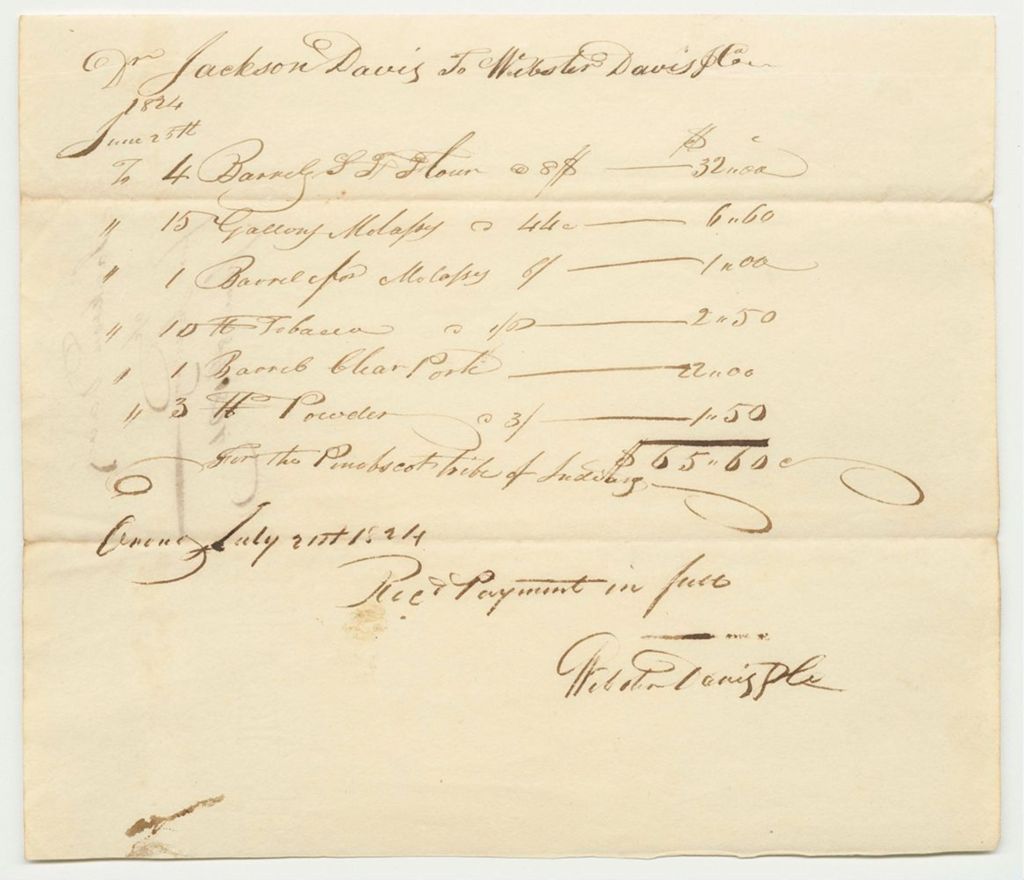 Dr Jackson Davis To Webster Davis & Co
1824
June 25th
$ c
To 4 Barrels S F Flour @ 8$ — 32"00
" 15 Gallons Molasses @ 44c — 6"60
" 1 Barrel for Molasses 6/ — 1"00
" 10 lb Tobacco @ 1/6 — 2"50
" 1 Barrel Clear Pork — 22"00
" 3 lb Powder @ 3/ — 1"50
For the Penobscot tribe of Indians $65"60c
Orono July 21st 1824
Recd Payment in full
Webster Davis & Co